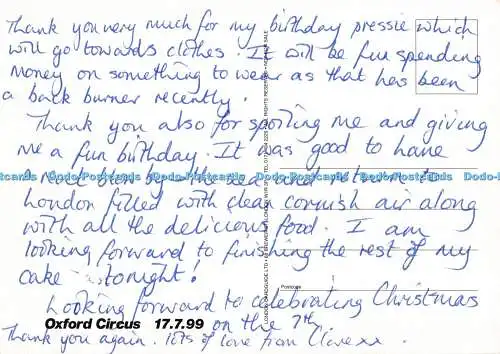 Thank you very much for my birthday pressie which
will go towards clothes. It will be fun spending
money on something to wear as that has been
a back burner recently.
Thank you also for spoiling me and giving
me a fun birthday. It was good to have
a real break by the sea and I return to
Dodo-Postcards Dodo-Postcards Dodo-Postcards Dodo-Postcards Dodo-Postcards
London filled with clean cornish air along
with all the delicious food. I am
looking forward to finishing the rest of my
cake tonight!
Postcode
Looking forward to celebrating Christmas
Oxford Circus 17.7.99 on the 7th
Thank you again. lots of love from Clive xx.